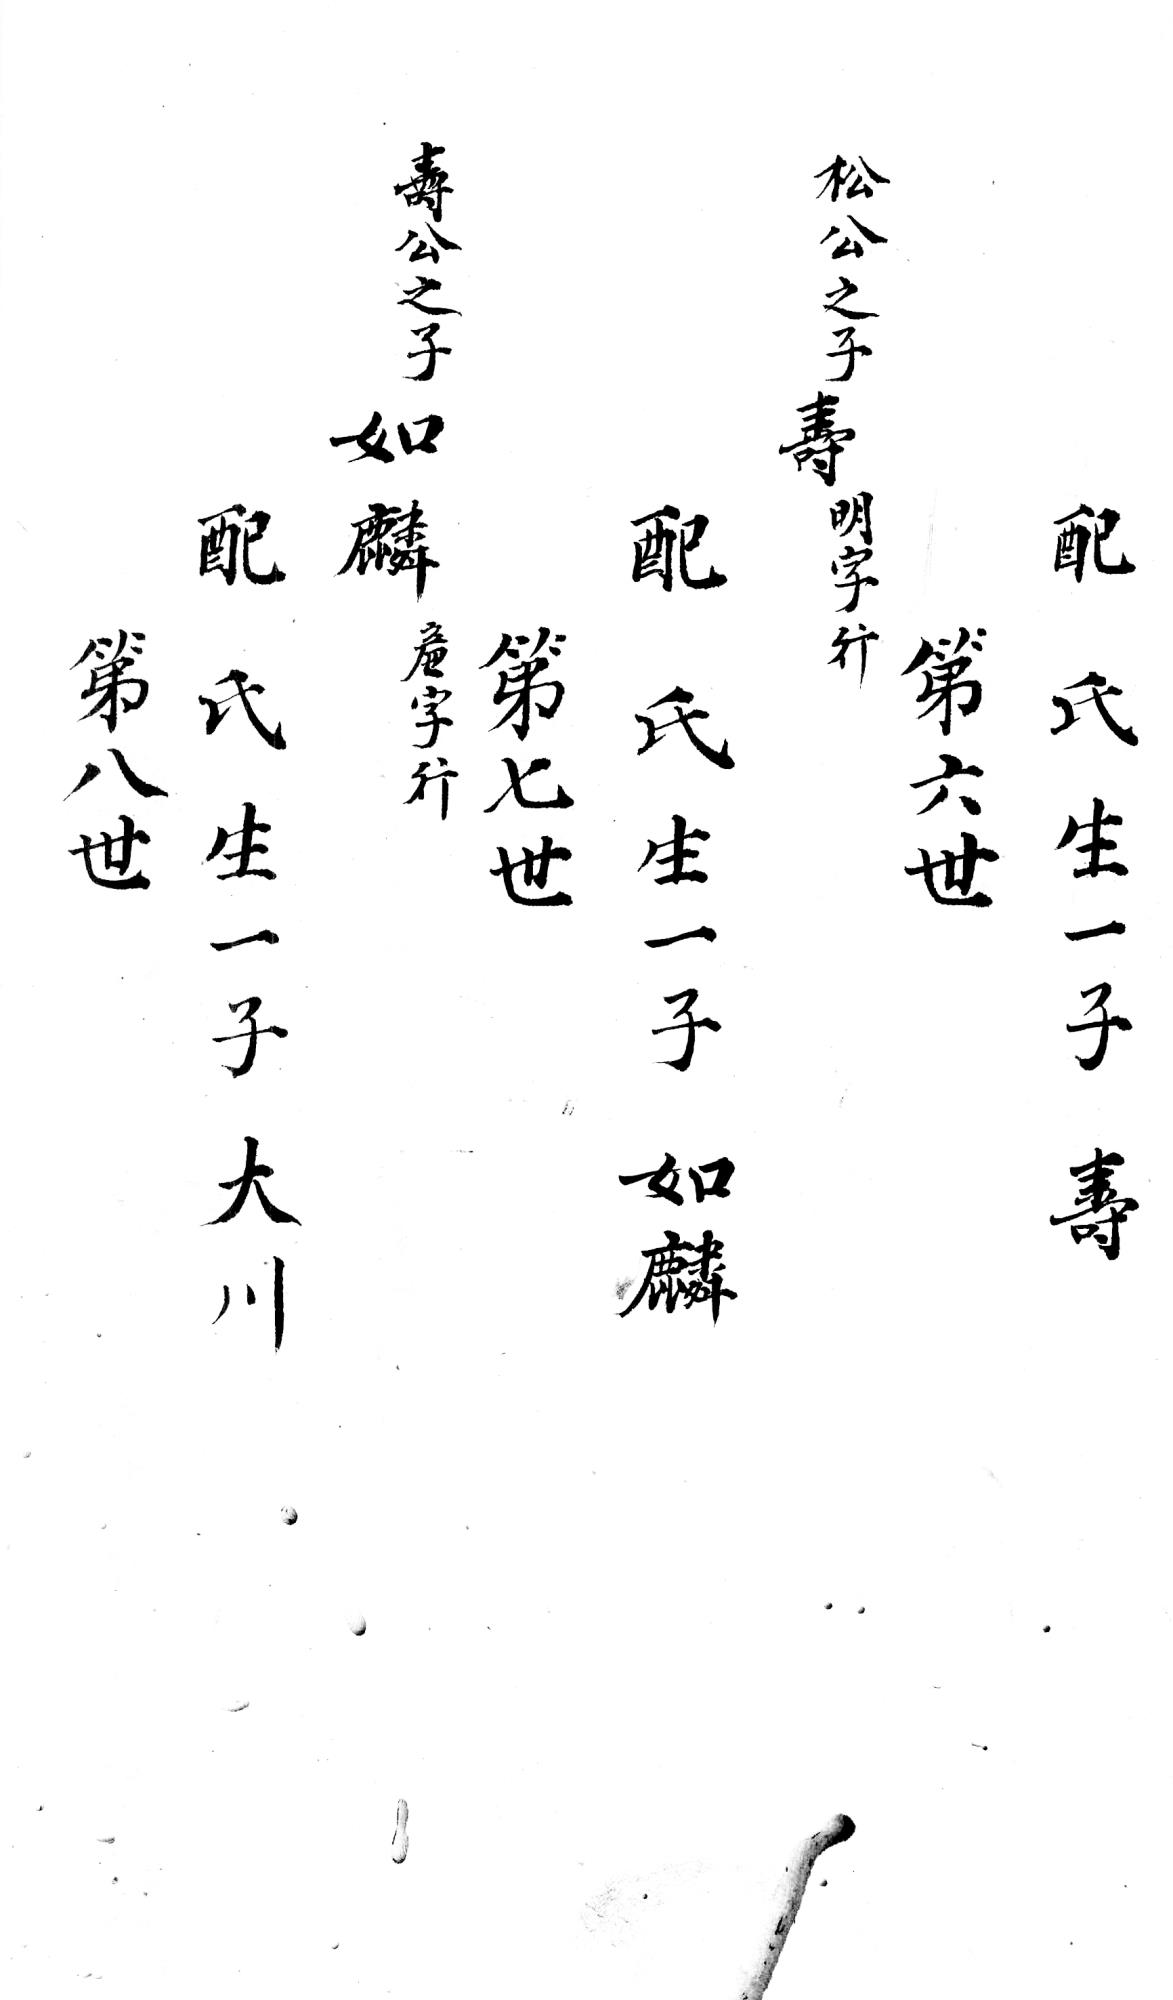 配 氏生一子 壽
第六世
松公之子壽明字行
配 氏生一子 如麟
第七世
壽公之子如麟字行
配 氏生一子 大川
第八世